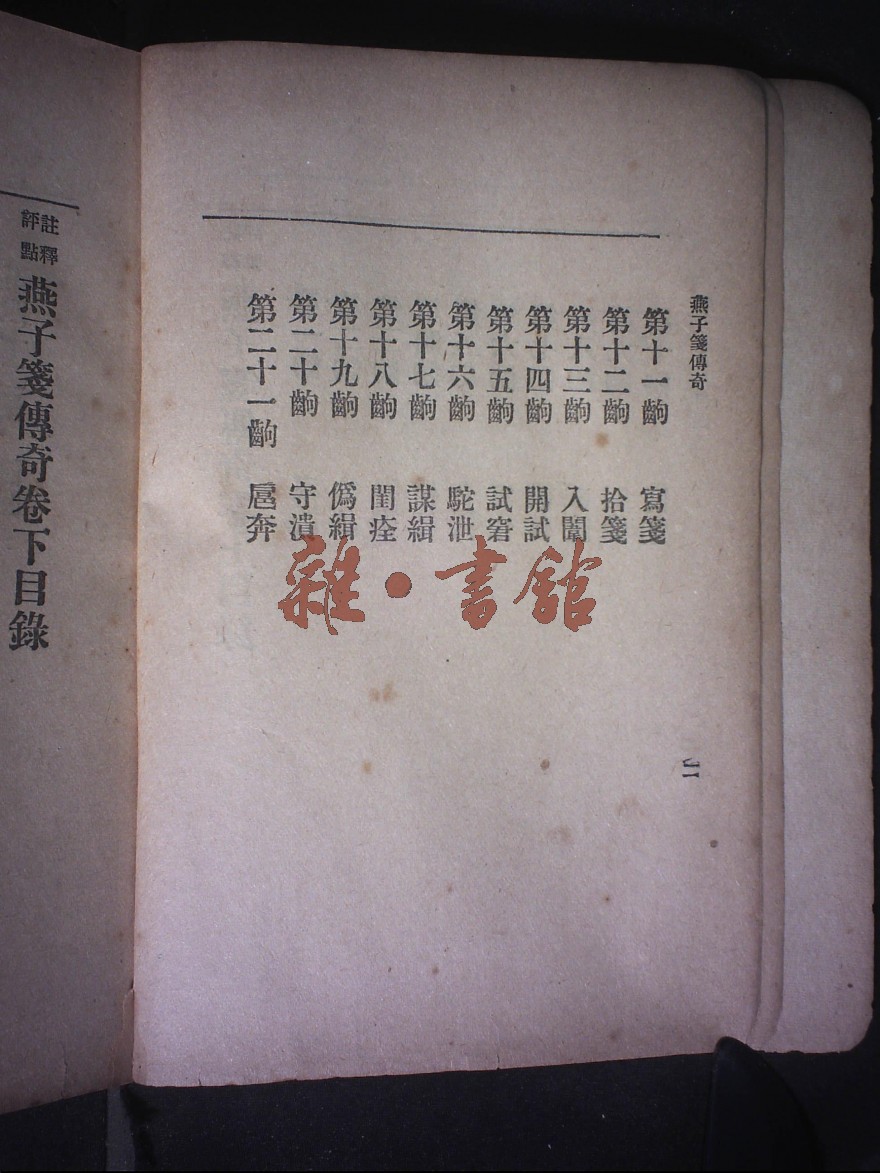 燕子箋傳奇
第十一齣 寫箋
第十二齣 拾箋
第十三齣 入闈
第十四齣 開試
第十五齣 試窘
第十六齣 駝泄
第十七齣 謀緝
第十八齣 閨痊
第十九齣 偽緝
第二十齣 守潰
第二十一齣 扈奔
二
註釋
評點
燕子箋傳奇卷下目錄
雜·書館